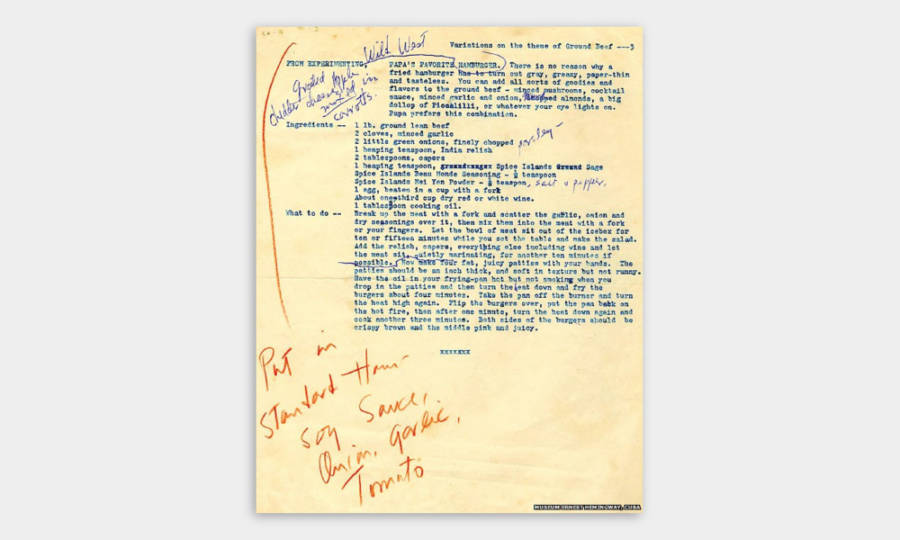 Variations on the theme of Ground Beef ---3
Wild West
FROM EXPERIMENTING, PAPA'S FAVORITE HAMBURGER. There is no reason why a
fried hamburger has to turn out gray, greasy, paper-thin
and tasteless. You can add all sorts of goodies and
flavors to the ground beef - minced mushrooms, cocktail
sauce, minced garlic and onion, chopped almonds, a big
dollop of Piccadilli, or whatever your eye lights on.
Papa prefers this combination.
Grated apple
cheddar cheese
mixed in
carrots.
Ingredients -- 1 lb. ground lean beef
2 cloves, minced garlic
2 little green onions, finely chopped parsley -
1 heaping teaspoon, India relish
2 tablespoons, capers
1 heaping teaspoon, Spice Islands Ground Sage
Spice Islands Beau Monde Seasoning - ½ teaspoon
Spice Islands Mei Yen Powder - ½ teaspon, salt & pepper,
1 egg, beaten in a cup with a fork
About one third cup dry red or white wine.
1 tablespoon cooking oil.
What to do -- Break up the meat with a fork and scatter the garlic, onion and
dry seasonings over it, then mix them into the meat with a fork
or your fingers. Let the bowl of meat sit out of the icebox for
ten or fifteen minutes while you set the table and make the salad.
Add the relish, capers, everything else including wine and let
the meat sit, quietly marinating, for another ten minutes if
possible. Now make four fat, juicy patties with your hands. The
patties should be an inch thick, and soft in texture but not runny.
Have the oil in your frying-pan hot but not smoking when you
drop in the patties and then turn the heat down and fry the
burgers about four minutes. Take the pan off the burner and turn
the heat high again. Flip the burgers over, put the pan back on
the hot fire, then after one minute, turn the heat down again and
cook another three minutes. Both sides of the burgers should be
crispy brown and the middle pink and juicy.
xxxxxxx
Put in
Standard Ham-
Soy Sauce,
Onion, garlic,
Tomato
MUSEUM ERNEST HEMINGWAY, CUBA